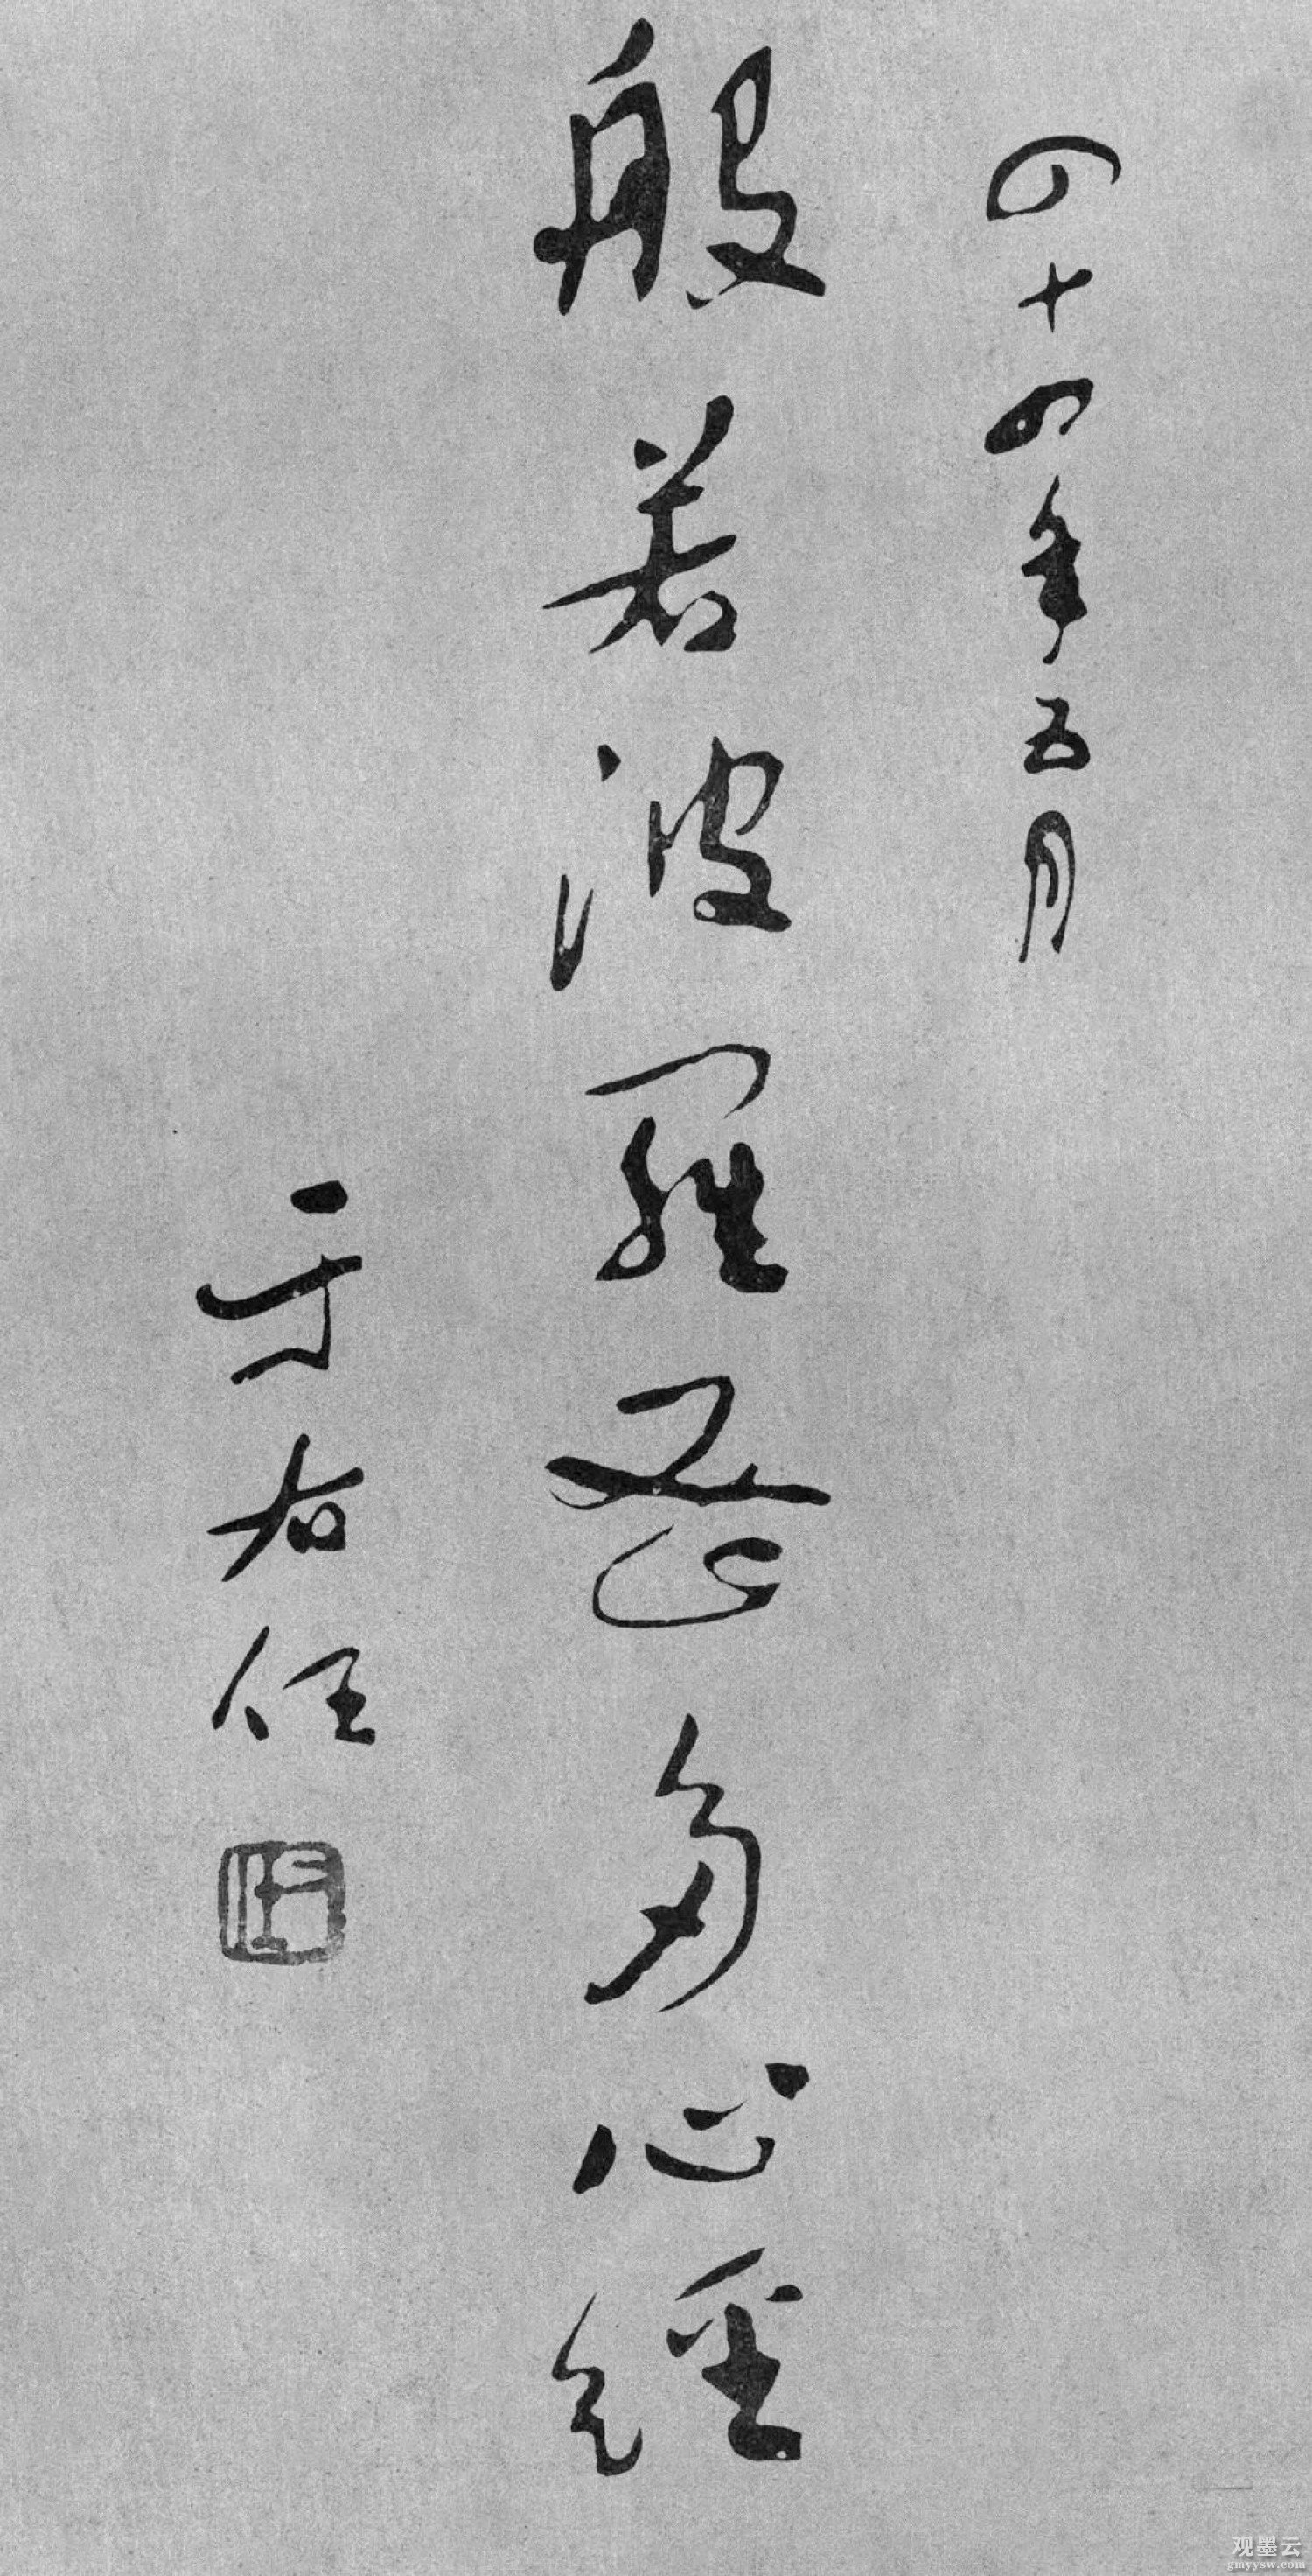 四十四年五月
般若波羅蜜多心經
于右任
右任
观墨云
gmyysw.com